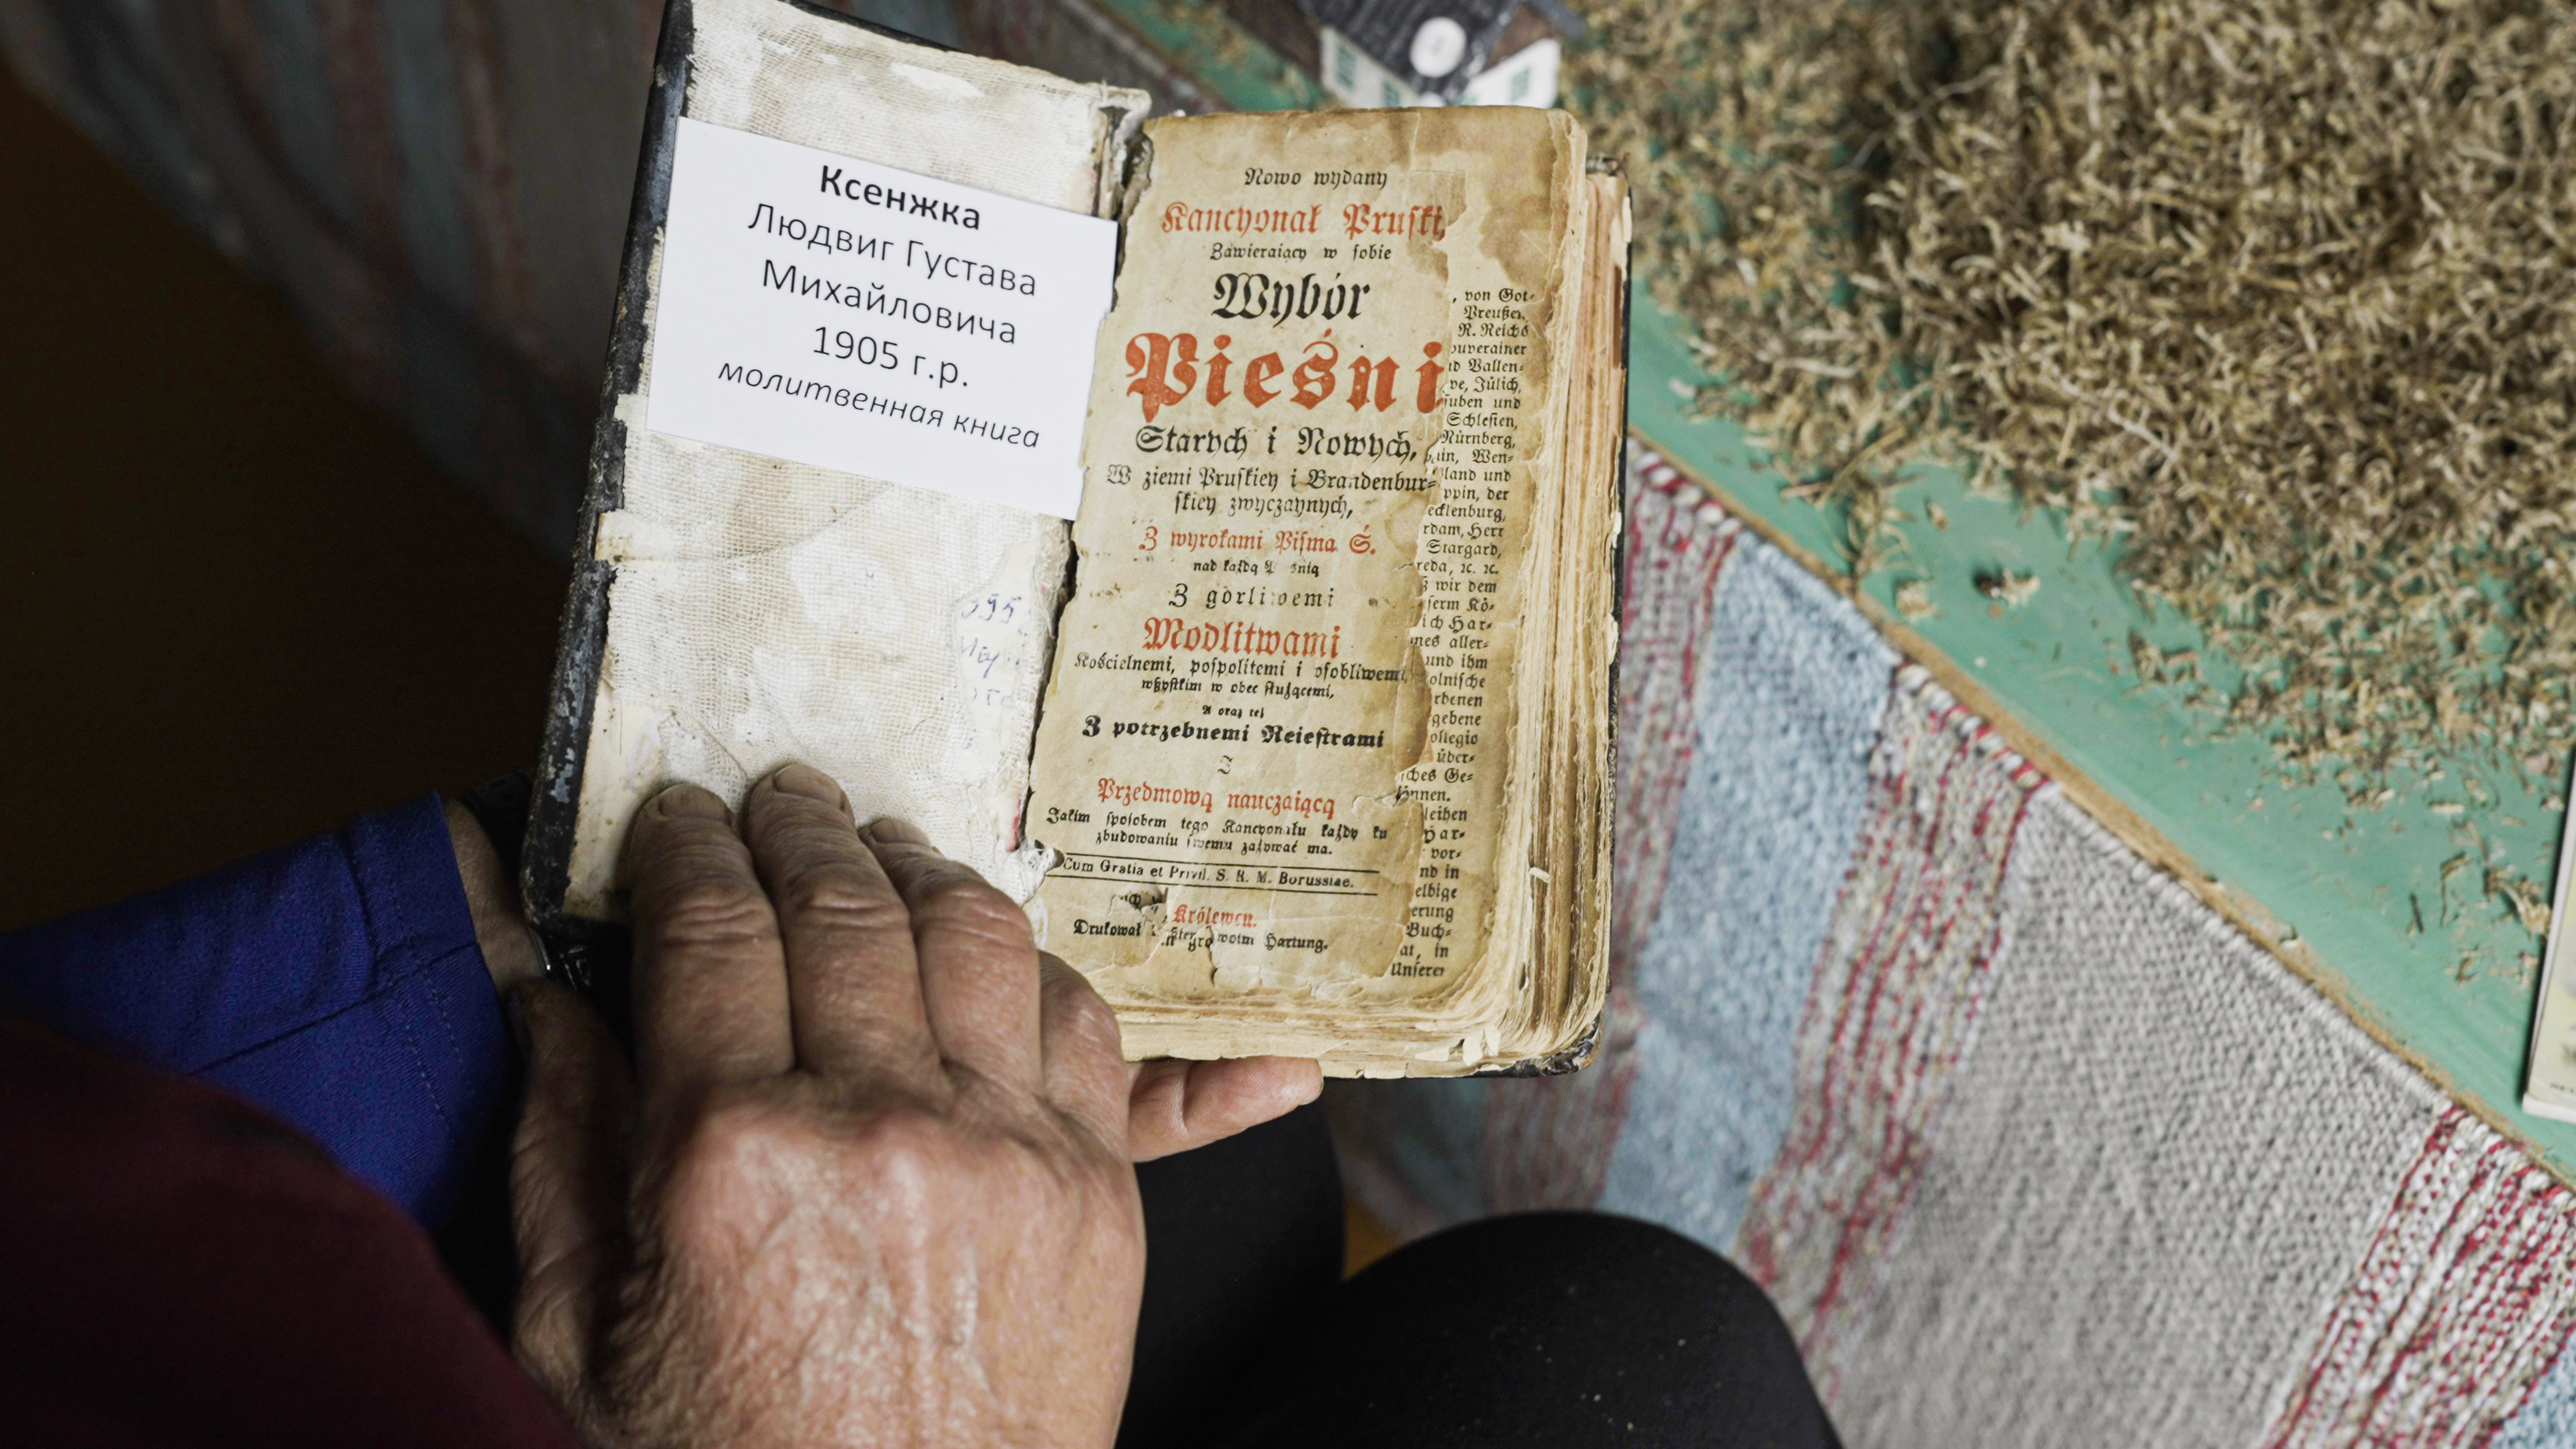 Ксенжка
Людвиг Густава
Михайловича
1905 г.р.
молитвенная книга
Nowo wydany
Kancyonał Pruſki,
Zawieraiący w ſobie
Wybór
Pieśni
Starych i Nowych,
W ziemi Pruſkiey i Brandenbur-
ſkiey zwyczaynych,
Z wyrokami Piſma Ś.
nad każdą
Z gorliwemi
Modlitwami
Kościelnemi, poſpolitemi i oſobliwemi,
wſzyſtkim w obec ſłużącemi,
A oraz też
Z potrzebnemi Reieſtrami
I
Przedmową nauczaiącą
Jakim ſpoſobem tego Kancyonału każdy ku
zbudowaniu ſwemu zażywać ma.
Cum Gratia et Privil. S. R. M. Borussiae.
Królewcu.
Drukował
Hartung.
, von Got-
Preußen,
R. Reichs
ouverainer
nd Vallen-
ve, Jülich,
ſuben und
Schleſien,
Nürnberg,
in, Wen-
land und
ppin, der
ecklenburg,
rdam, Herr
Stargard,
reda, ꝛc. ꝛc.
ß wir dem
ſerm Kö-
ich Har-
nes aller-
und ihm
olniſche
rbenen
gebene
ollegio
über-
ſches Ge-
önnen.
leihen
Har-
vor-
nd in
elbige
erung
Buch-
at, in
Unſerer